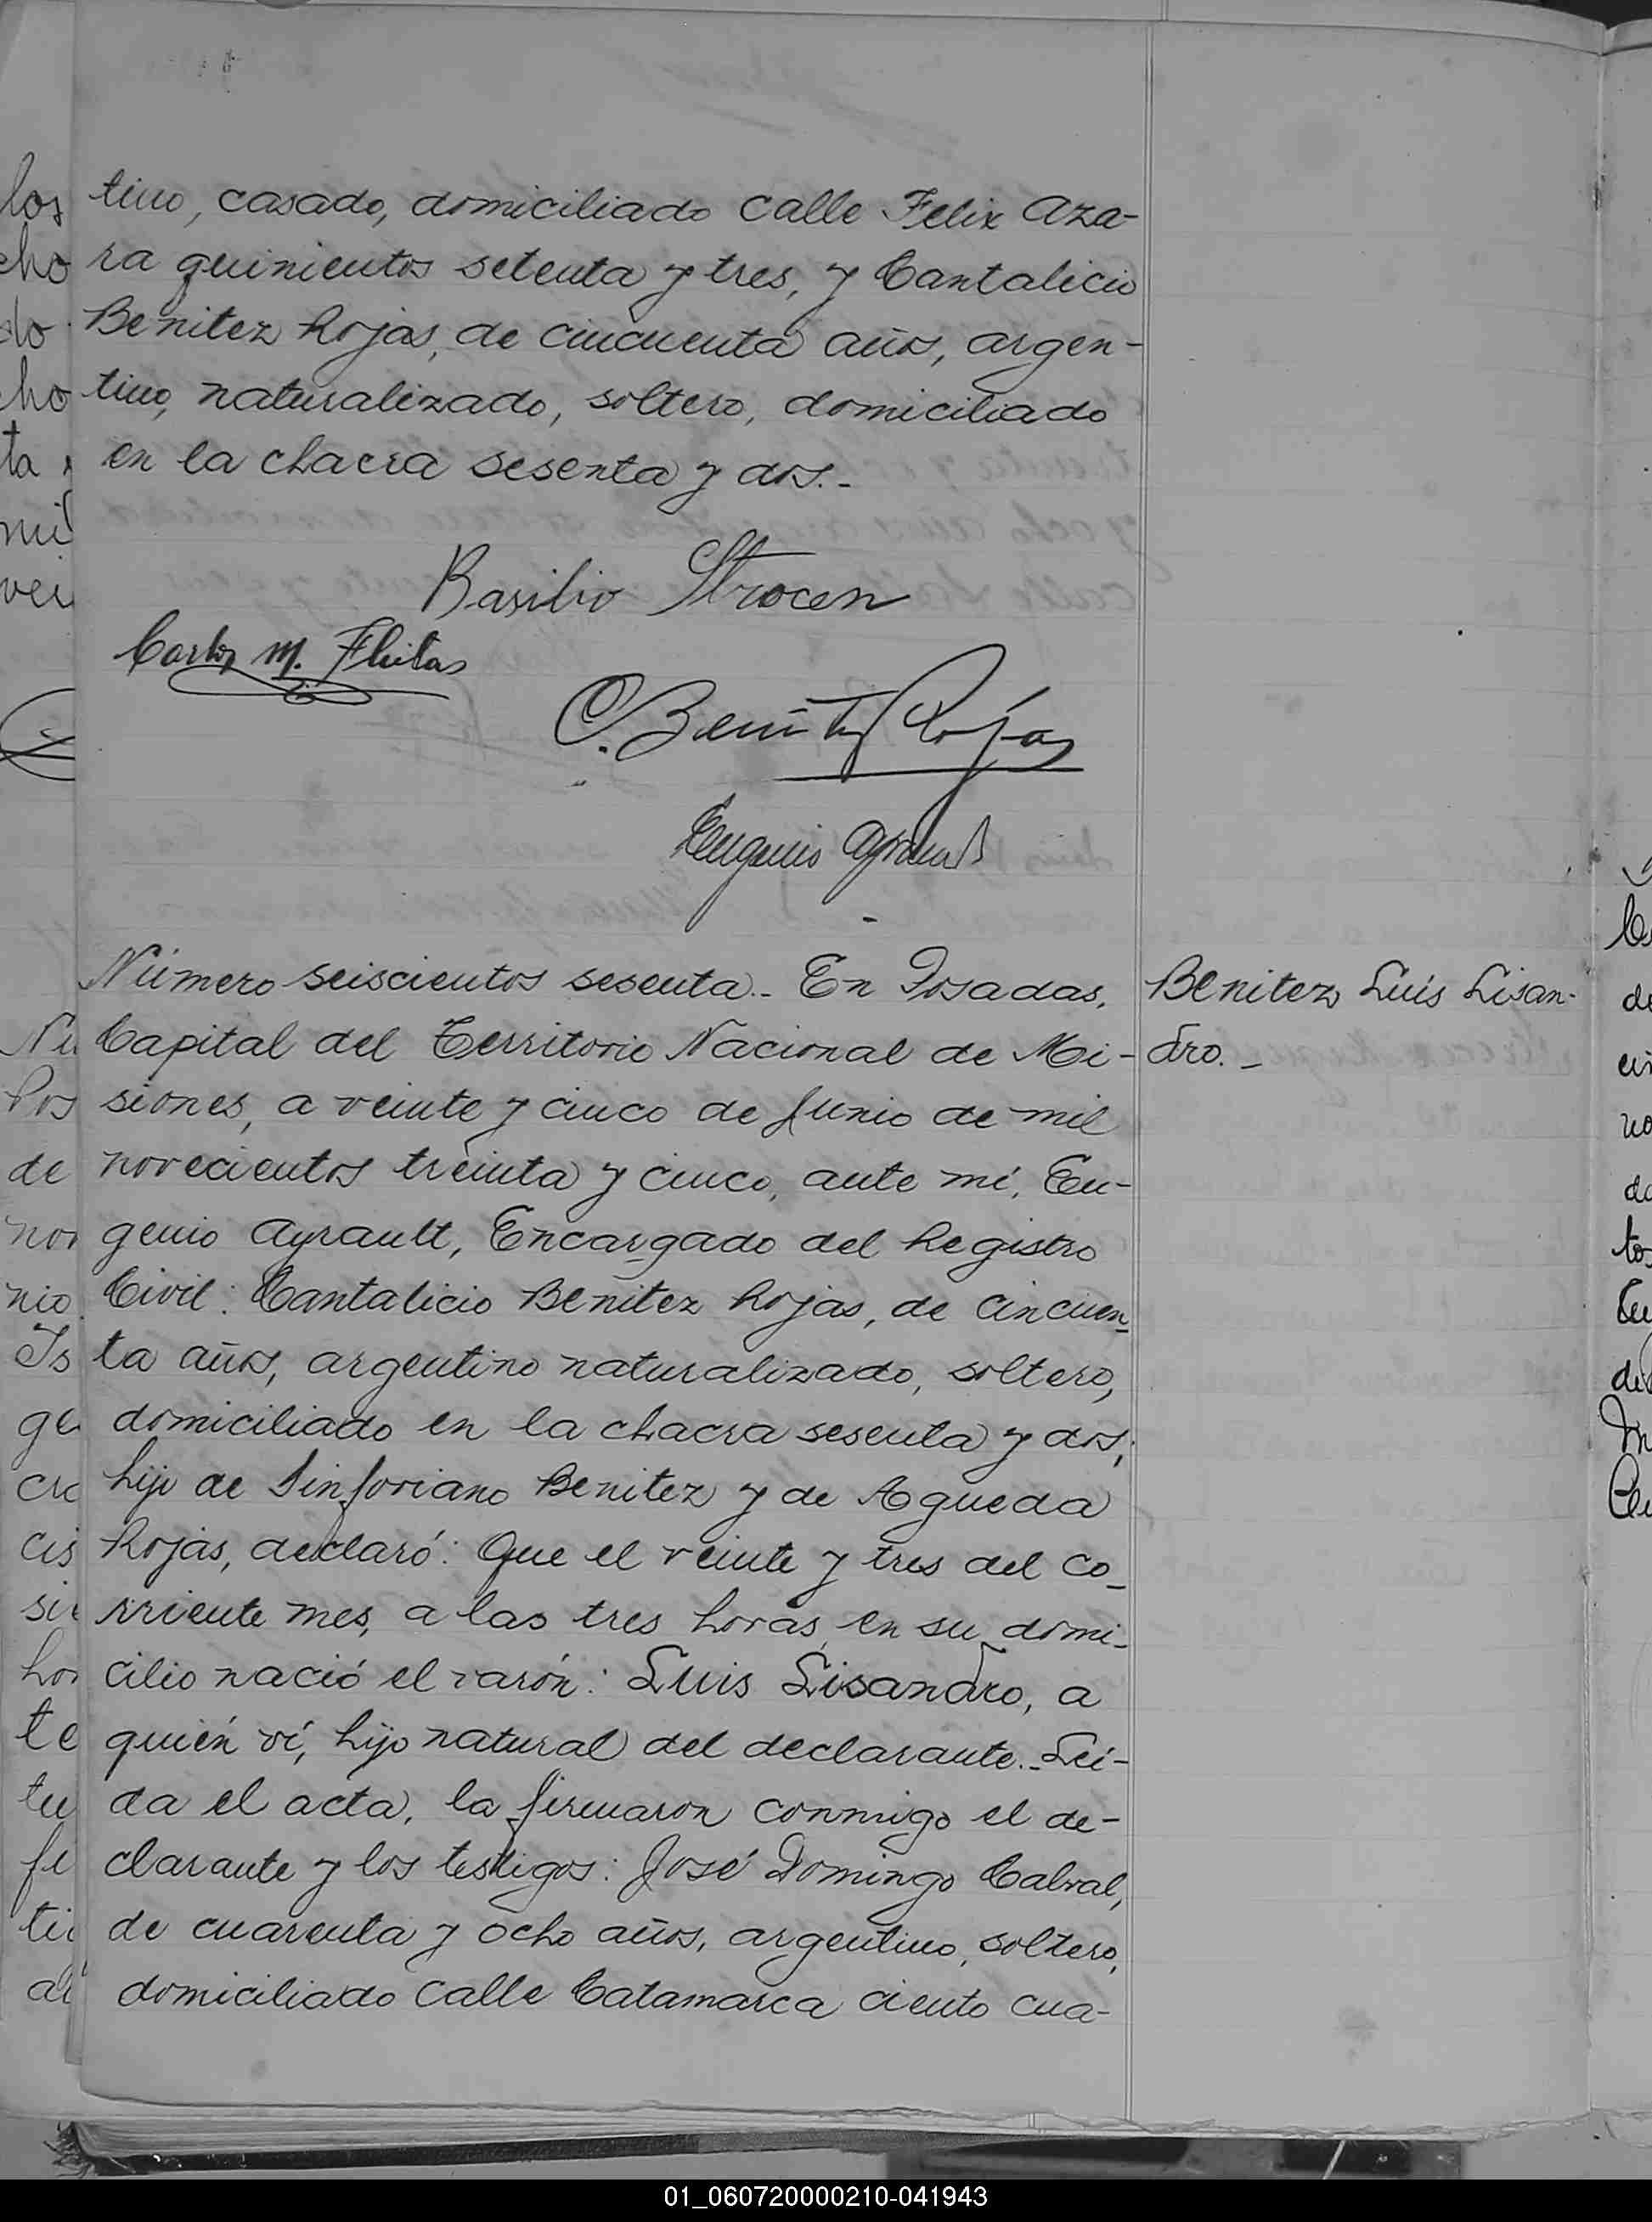 tino, casado, domiciliado calle Felix Aza-
ra quinientos setenta y tres, y Cantalicio
Benitez Rojas, de cincuenta años, argen-
tino, naturalizado, soltero, domiciliado
en la chacra sesenta y dos.-
Basilio Strocen
Carlos M. Fleitas
C. Benitez Rojas
Eugenio Ayrault
Número seiscientos sesenta.- En Posadas,
Capital del Territorio Nacional de Mi-
siones, a veinte y cinco de Junio de mil
novecientos treinta y cinco, ante mí, Eu-
genio Ayrault, Encargado del Registro
Civil: Cantalicio Benitez Rojas, de cincuen-
ta años, argentino naturalizado, soltero,
domiciliado en la chacra sesenta y dos,
hijo de Sinforiano Benitez y de Agueda
Rojas, declaró: Que el veinte y tres del co-
rriente mes, a las tres horas, en su domi-
cilio nació el varón: Luis Lisandro, a
quién ví, hijo natural del declarante.- Leí-
da el acta, la firmaron conmigo el de-
clarante y los testigos: José Domingo Cabral,
de cuarenta y ocho años, argentino, soltero,
domiciliado calle Catamarca ciento cua-
Benitez Luis Lisan-
dro.-
01_060720000210-041943